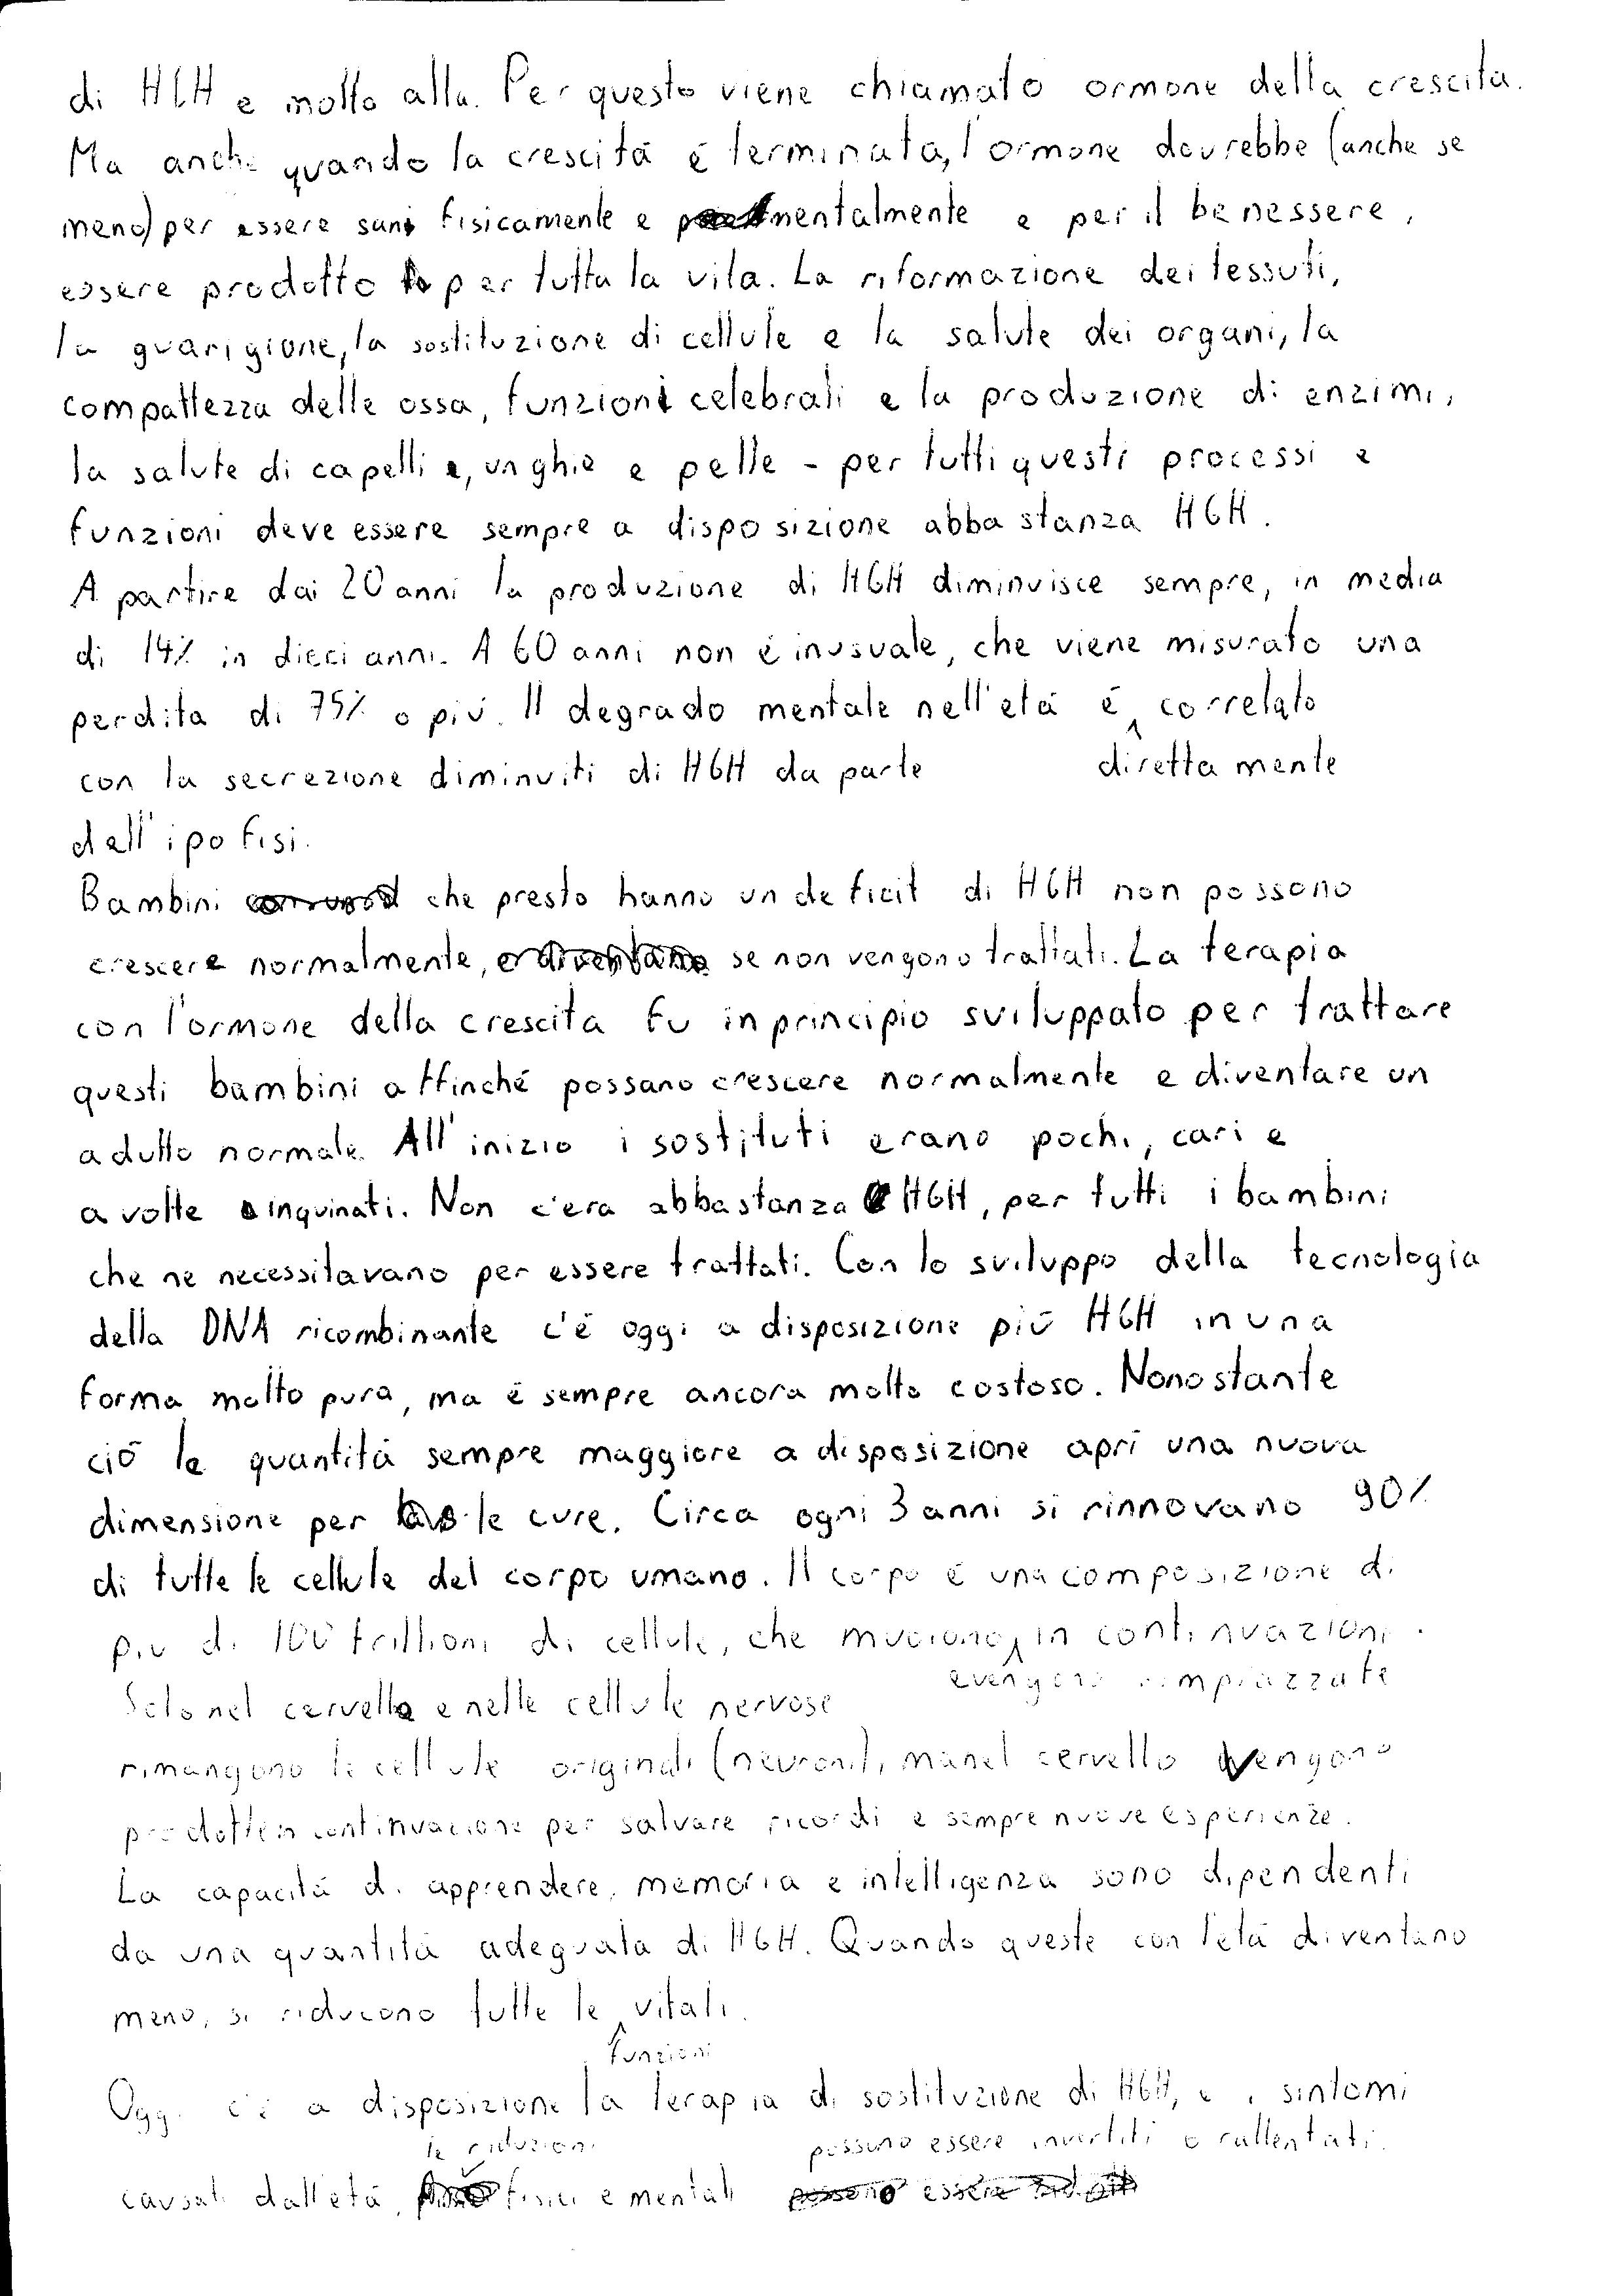 di HGH e molto alta. Per questo viene chiamato ormone della crescita.
Ma anche quando la crescitá é terminata, l'ormone dovrebbe (anche se
meno) per essere sani fisicamente e mentalmente e per il benessere,
essere prodotto per tutta la vita. La riformazione dei tessuti,
la guarigione, la sostituzione di cellule e la salute dei organi, la
compattezza delle ossa, funzioni celebrali e la produzione di enzimi,
la salute di capelli, unghie e pelle - per tutti questi processi e
funzioni deve essere sempre a disposizione abbastanza HGH.
A partire dai 20 anni la produzione di HGH diminuisce sempre, in media
di 14% in dieci anni. A 60 anni non é inusuale, che viene misurato una
perdita di 75% o piú. Il degrado mentale nell'etá é correlato
con la secrezione diminuiti di HGH da parte direttamente
dell'ipofisi.
Bambini che presto hanno un deficit di HGH non possono
crescere normalmente, se non vengono trattati. La terapia
con l'ormone della crescita fu in principio sviluppato per trattare
questi bambini affinché possano crescere normalmente e diventare un
adulto normale. All'inizio i sostituti erano pochi, cari e
a volte inquinati. Non c'era abbastanza HGH, per tutti i bambini
che ne necessitavano per essere trattati. Con lo sviluppo della tecnologia
della DNA ricombinante c'é oggi a disposizione piú HGH in una
forma molto pura, ma é sempre ancora molto costoso. Nonostante
ció le quantitá sempre maggiore a disposizione aprí una nuova
dimensione per le cure. Circa ogni 3 anni si rinnovano 90%
di tutte le cellule del corpo umano. Il corpo é una composizione di
piu di 100 trillioni di cellule, che muoiono in continuazioni.
e vengono rimpiazzate
Solo nel cervello e nelle cellule nervose
rimangono le cellule originali (neuroni), ma nel cervello vengono
prodotte in continuazione per salvare ricordi e sempre nuove esperienze.
La capacitá di apprendere, memoria e intelligenza sono dipendenti
da una quantitá adeguata di HGH. Quando queste con l'etá diventano
meno, si riducono tutte le vitali.
funzioni
Oggi c'é a disposizione la terapia di sostituzione di HGH, e i sintomi
le riduzioni possono essere invertiti o rallentati.
causati dall'etá, fisici e mentali